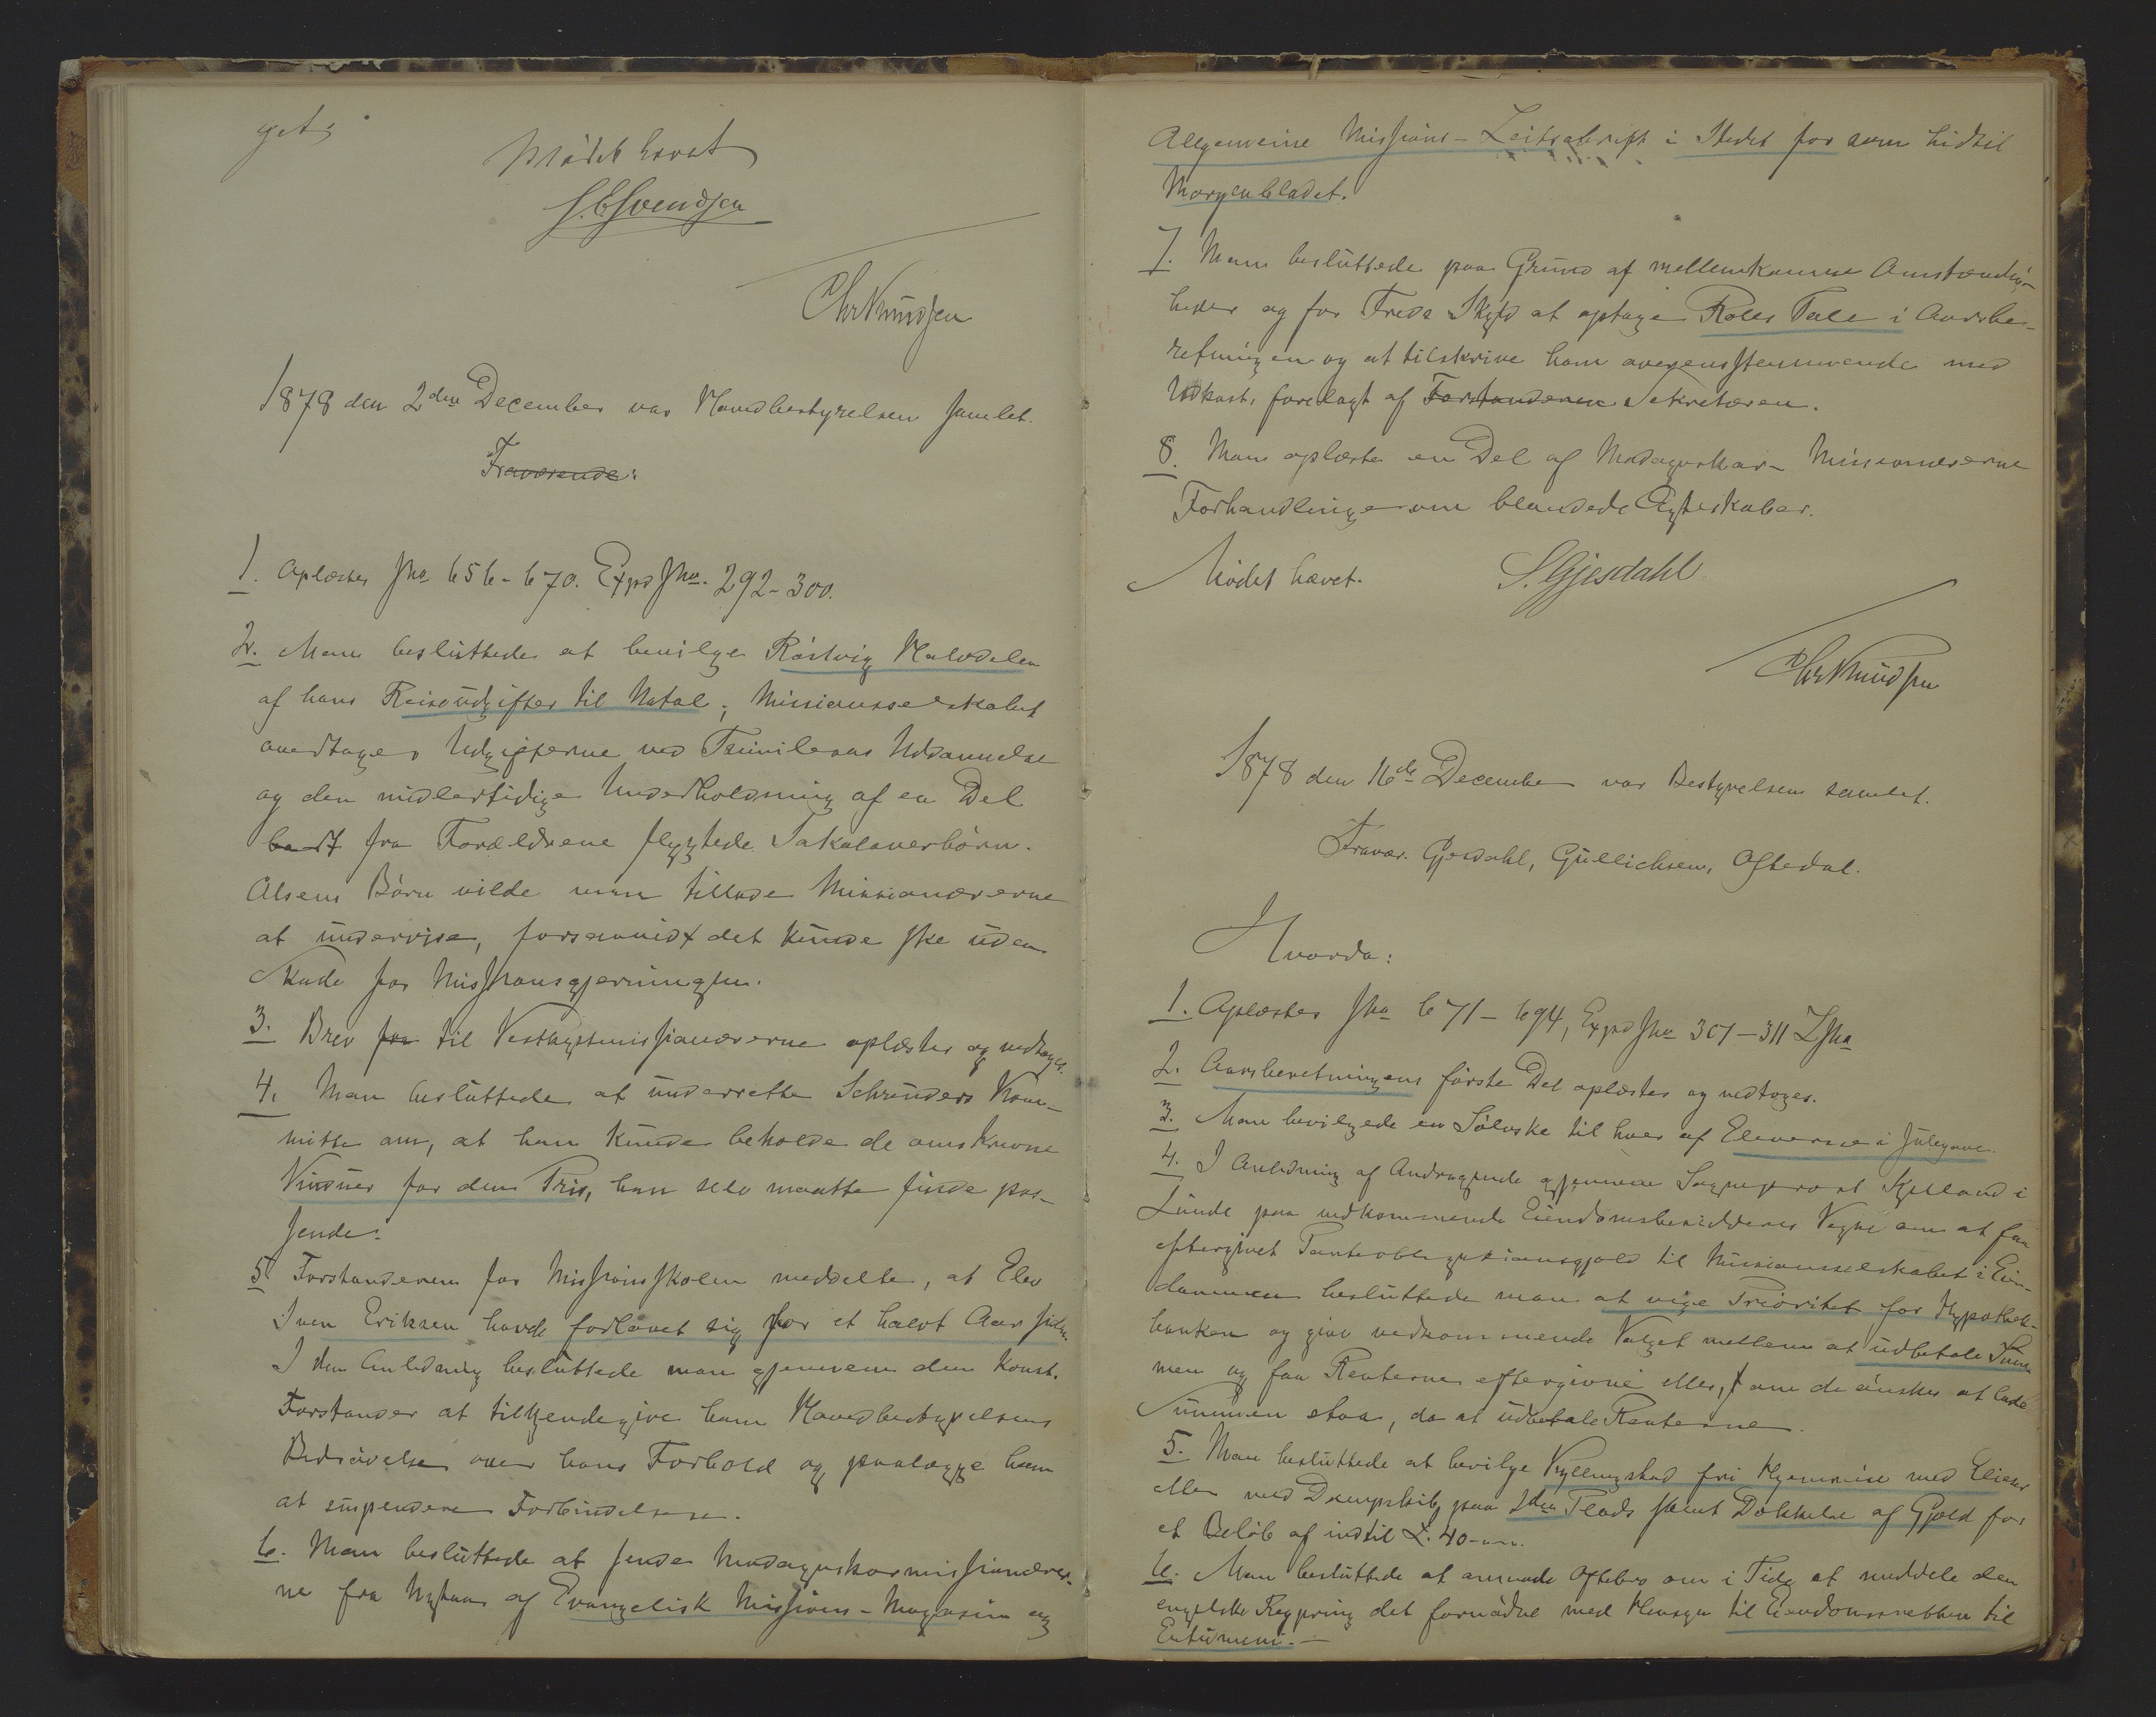 get;
Mödet hævet
S. E. Svendsen
Chr Knudsen
1878 den 2den December var Hovedbestyrelsen samlet.
Fraværende:
1. Oplæstes Jno 656-670. Exped Jno. 292-300.
2. Man besluttede at bevilge Röstvig Halvdelen
af hans Reiseudgifter til Natal; Missionsselskabet
overtager Udgifterne ved Uddannelse
og den midlertidige Underholdning af en Del
bort fra Forældrene flygtede Sakalaverbörn.
Olsens Börn vilde man tillade Missionærerne
at undervise, forsaavidt det kunde ske uden
Skade for Missionsgjerningen.
3. Brev fra til Vestkystmissionærerne oplæstes og vedtoges.
4. Man besluttede at underrette Schreuders Kom-
mitte om, at han kunde beholde de omskrevne
Vinduer for den Pris, han selv maatte finde pas-
sende.
5. Forstanderen for Missionsskolen meddelte, at Elev
Iver Eriksen havde forlovet sig for et halvt Aar siden.
I den Anledning besluttede man gjennem den konst.
Forstander at tilkjendegive ham Hovedbestyrelsens
Bedrövelse over hans Forhold og paalægge ham
at suspendere Forbindelsen.
6. Man besluttede at sende Madagaskarmissionærer-
ne fra Nytaar af Evangelisk Missions-Magasin og
Allgemeine Missions-Zeitschrift i Stedet for som hidtil
Morgenbladet.
7. Man besluttede paa Grund af mellemkomne Omstændig-
heder og for Freds Skyld at optage Roles Tale i Aarsbe-
retningen og at tilskrive ham overensstemmende med
Udkast, forelagt af Forstanderen Sekretæren.
8. Man oplæste en Del af Madagaskar- Missionærerne
Forhandlinger om blandede Ægteskaber.
Mödet hævet. S. Gjesdahl
Chr Knudsen
1878 den 16de December var Bestyrelsen samlet.
Fravær. Gjesdahl, Gullichsen, Oftedal.
Hvorda:
1. Oplæstes Jno 671-694, Exped Jno 301-311
2. Aarsberetningens förste Del oplæstes og vedtoges.
3. Man bevilgede en Sölvske til hver af Eleverne i Julegave.
4. I Anledning af Andragende gjennem Sogneprest Kjelland i
Lunde paa vedkommende Eiendomsbesidderes Vegne om at faa
eftergivet Panteobligationsgjæld til Missionsselskabet i Eien-
dommen besluttede man at vige Prioritet for Hypothek-
banken og give vedkommende Valget mellem at udbetale Sum-
men og faa Renterne eftergivne eller, om de önsker at lade
Summen staa, da at udbetale Renterne.
5. Man besluttede at bevilge Kyllingstad fri Hjemreise med Elieser
eller med Dampskib paa 2den Plads samt Dækkelse af Gjæld for
et Belöb af indtil £. 40
6. Man besluttede at anmode Oftebro om i Tide at meddele den
engelske Regjering det fornödne med Hensyn til Eiendomsretten til
Entumeni.